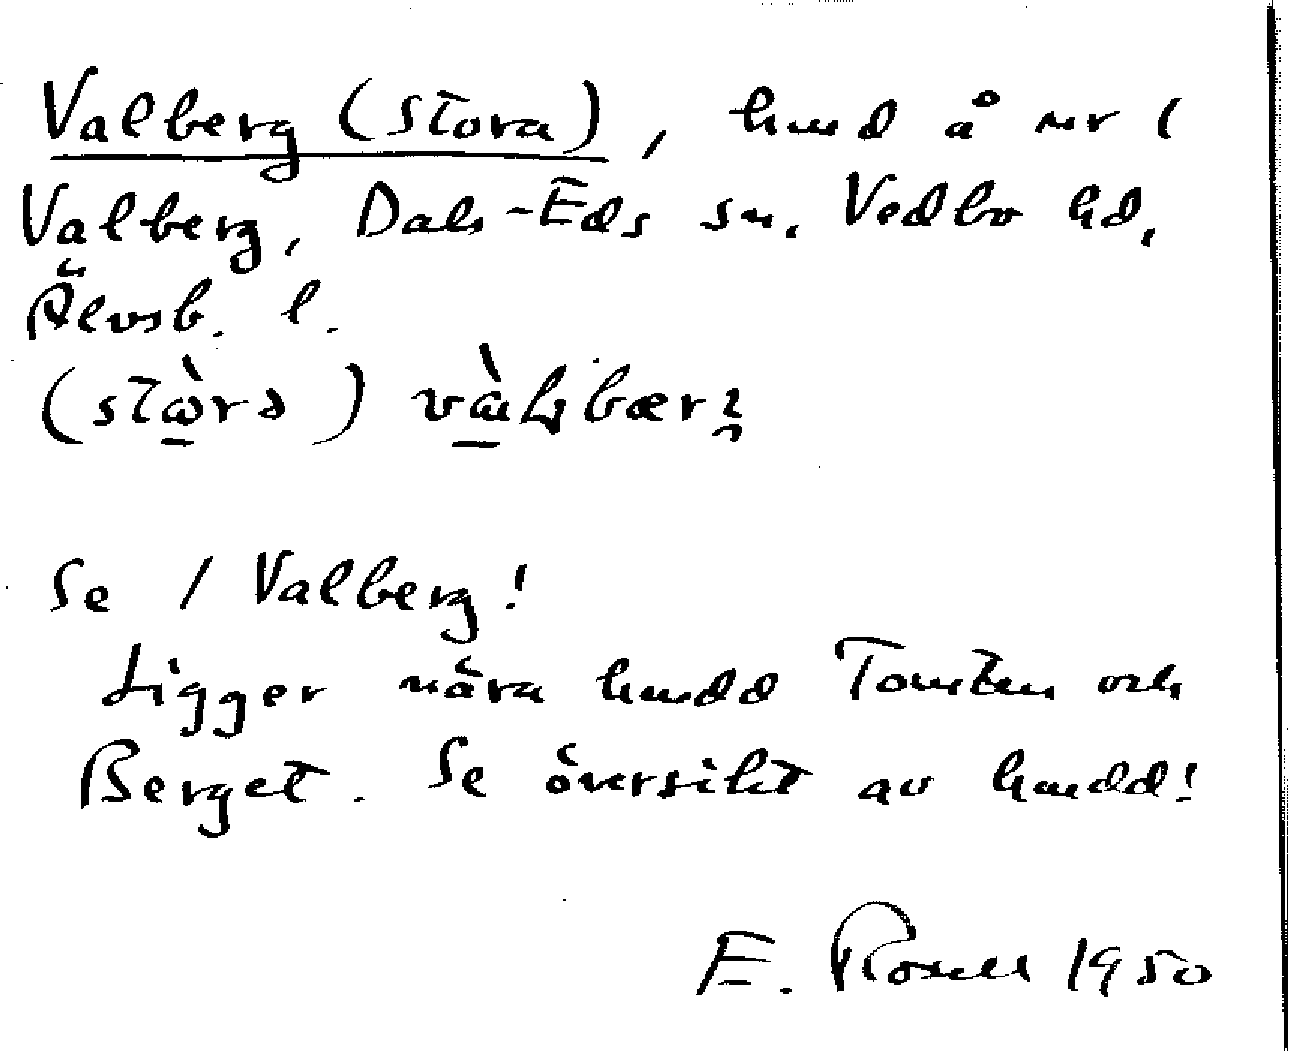 Valberg (Stora), hmd å nr 1
Valberg, Dals-Eds sn. Vedbo hd,
Älvsb. l.
(stɷ̀rə)
Se 1 Valberg!
Ligger nära hmdd Tomten och
Berget. Se översikt av hmdd!
E. Rosell 1950